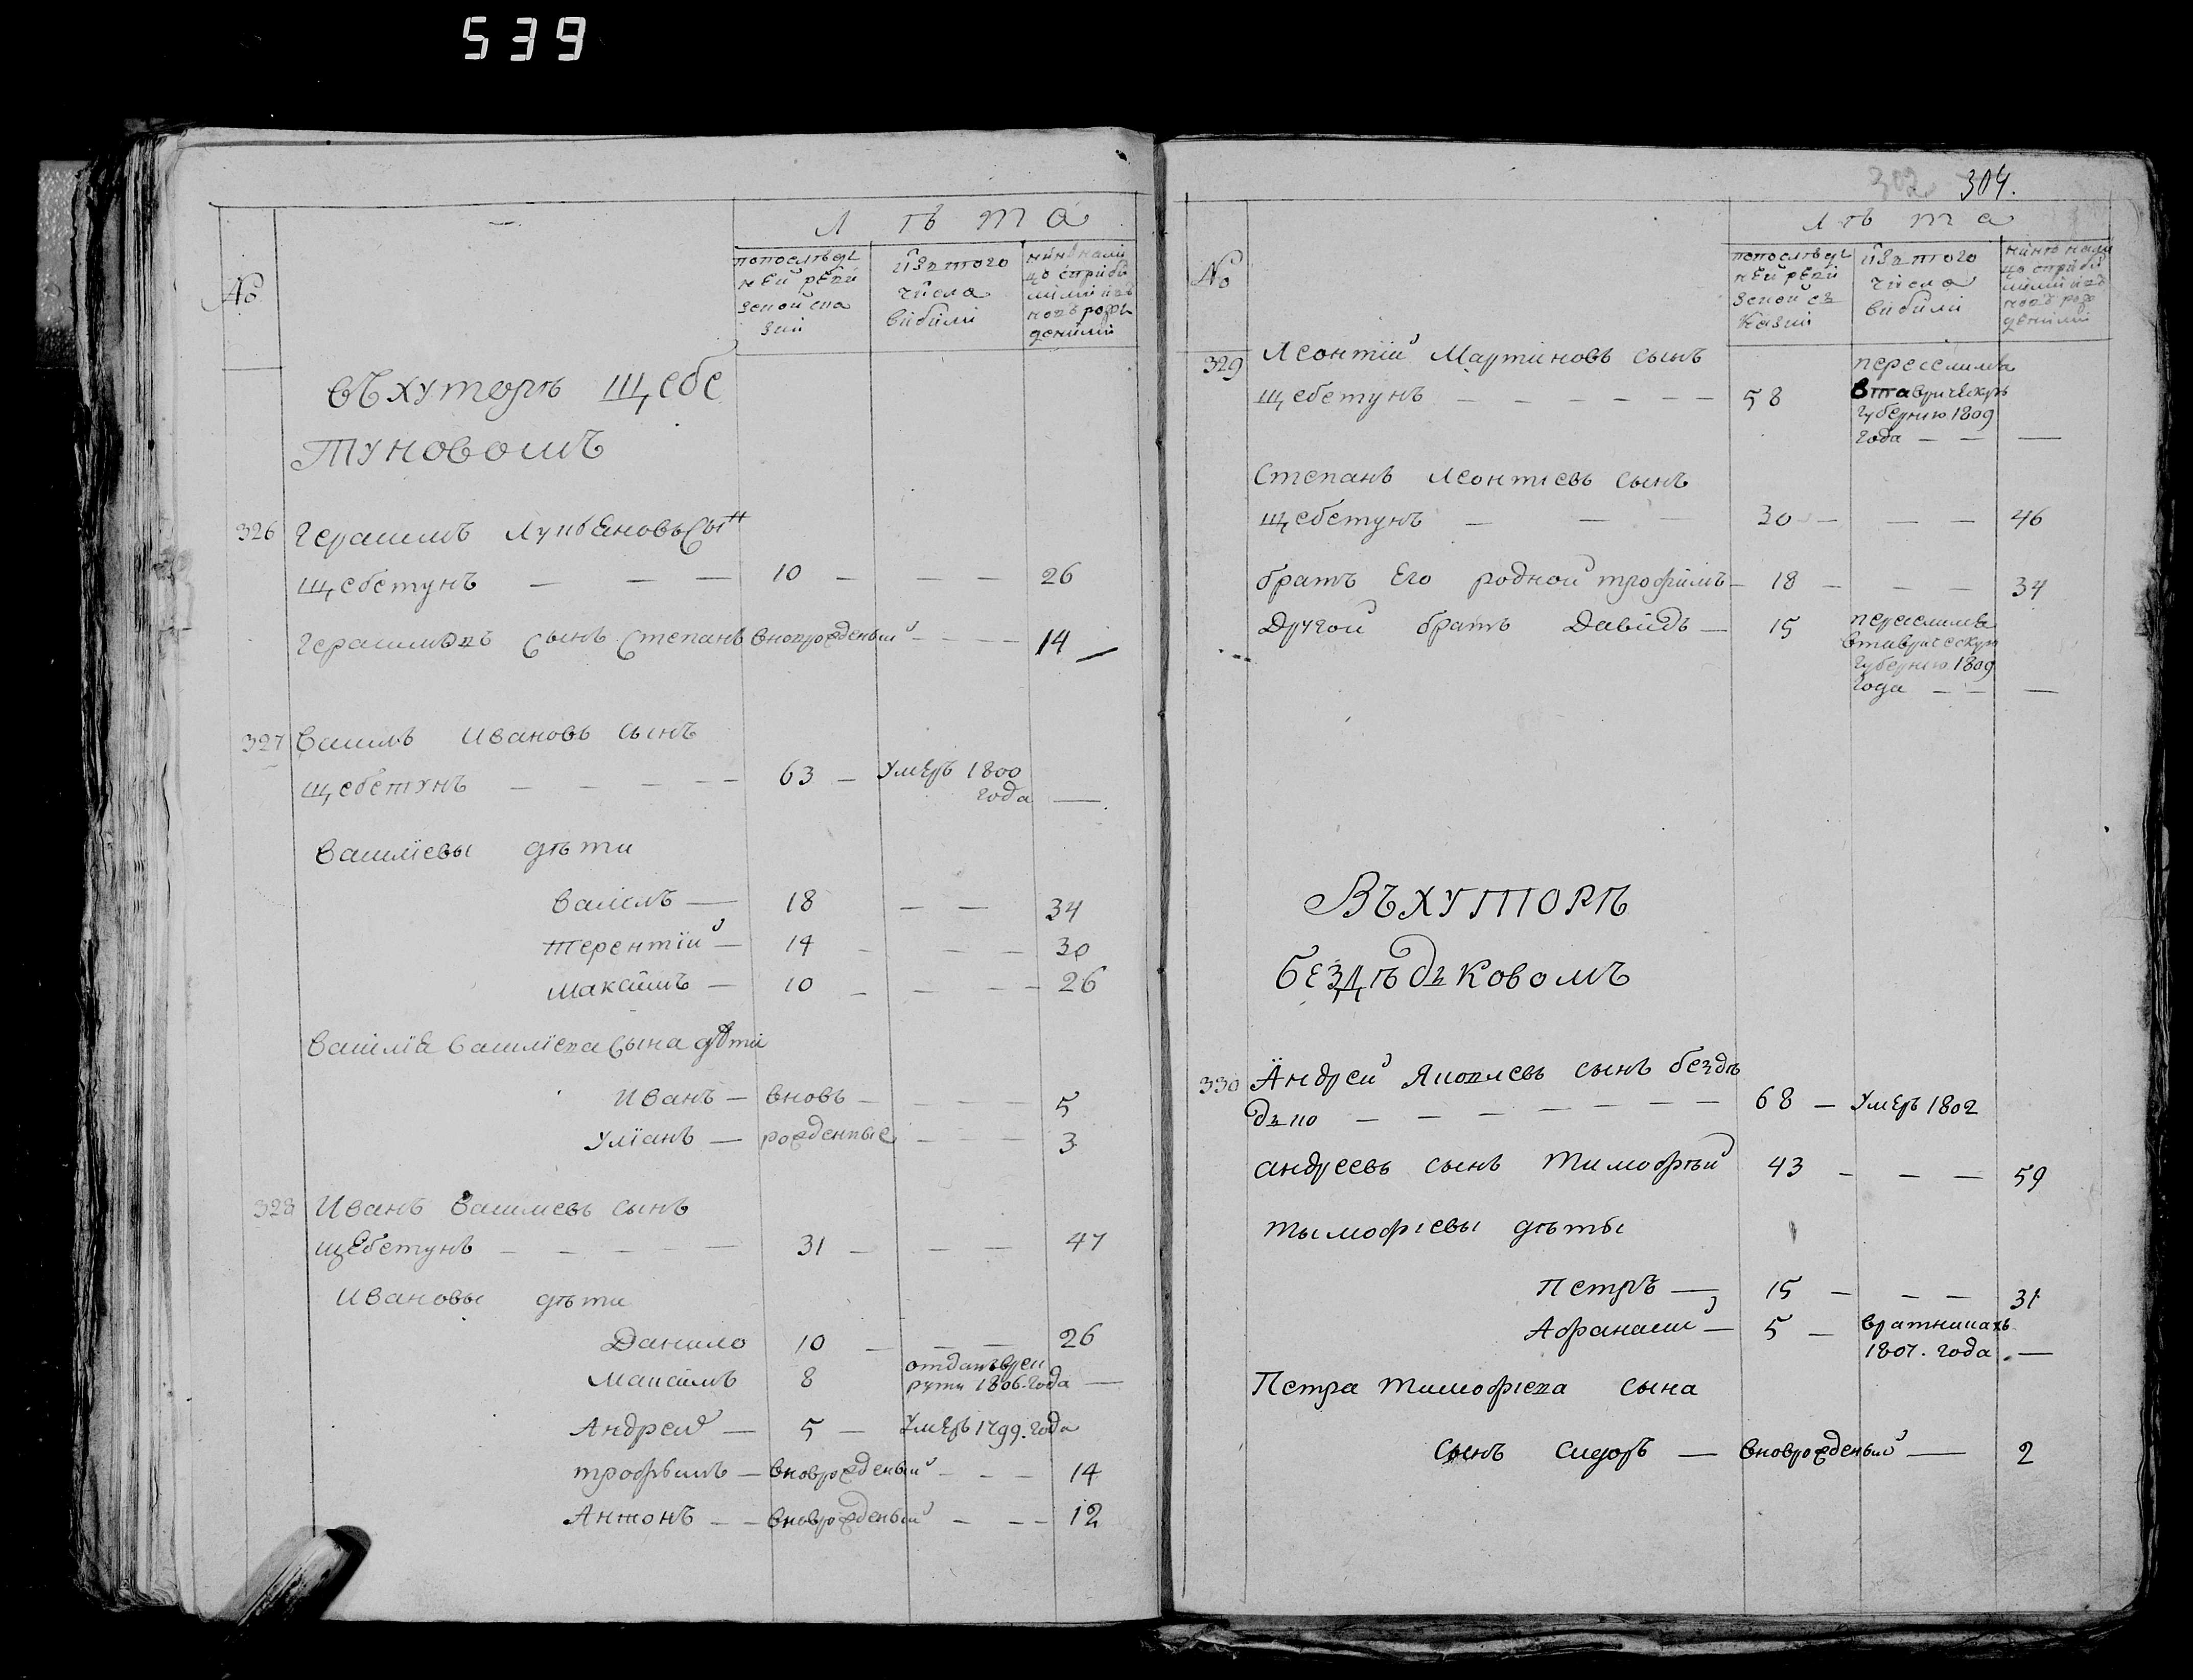 539
№
Л ѣ т а
попослѣдн
ней реви
зской ска
зки
изъ того
числа
вибили
нинѣ нали
цо сприби
лими изъ
новъ рож
денними
въ хуторѣ щебе
туновомъ
326 Герасимъ Лукьеновъ сын
щебетунъ — — — 10 — — — 26
Герасимовъ сынъ Степанъ вноврожденый — — — 14
327 василь Ивановъ сынъ
щебетунъ — — — — 63 — умеръ 1800
года —
василіевы дѣти
василь — 18 — — 34
терентій — 14 — — — 30
макаимъ — 10 — — — 26
василія василіева сына дѣти
Иванъ — вновь — — — — 5
улїанъ — рожденные — — — 3
328 Иванъ василиевъ сынъ
щебетунъ — — — — 31 — — — 47
Ивановы дѣти
Данило 10 — — — 26
Максимъ 8 отданъ врек
руты 1806. года —
Андрей — 5 — умеръ 1799. года
трофимъ — вноврожденый — — — 14
Антонъ — — вноврожденый — — — 12
302 304.
№
Л ѣ т а
попослѣдн
ней реви
зской ск
казки
изъ того
числа
вибили
нинѣ нали
цо сприби
лими изъ
новъ рож
денними
329 Леонтій Мартиновъ сынъ
переселился
щебетунъ — — — — — — 58 втаврическую
губернию 1809
года — — —
Степанъ Леонтиевъ сынъ
щебетунъ — — — 30 — — — 46
братъ Его родной трофимъ — 18 — — — 34
Другой братъ Давидъ — 15 переселился
втаврическую
губернию 1809
года — — —
Въ хуторѣ
бездѣдьковомъ
330 Андрей Яковлевъ сынъ бездѣ
дько — — — — — — — 68 — умеръ 1802
андреевъ сынъ тимофѣй 43 — — — 59
тымофіевы дѣты
Петръ — 15 — — — 31
Афанасий — 5 — вратникахъ
1807. года. —
Петра тимофіева сына
сынъ сидоръ — вноврожденый — 2